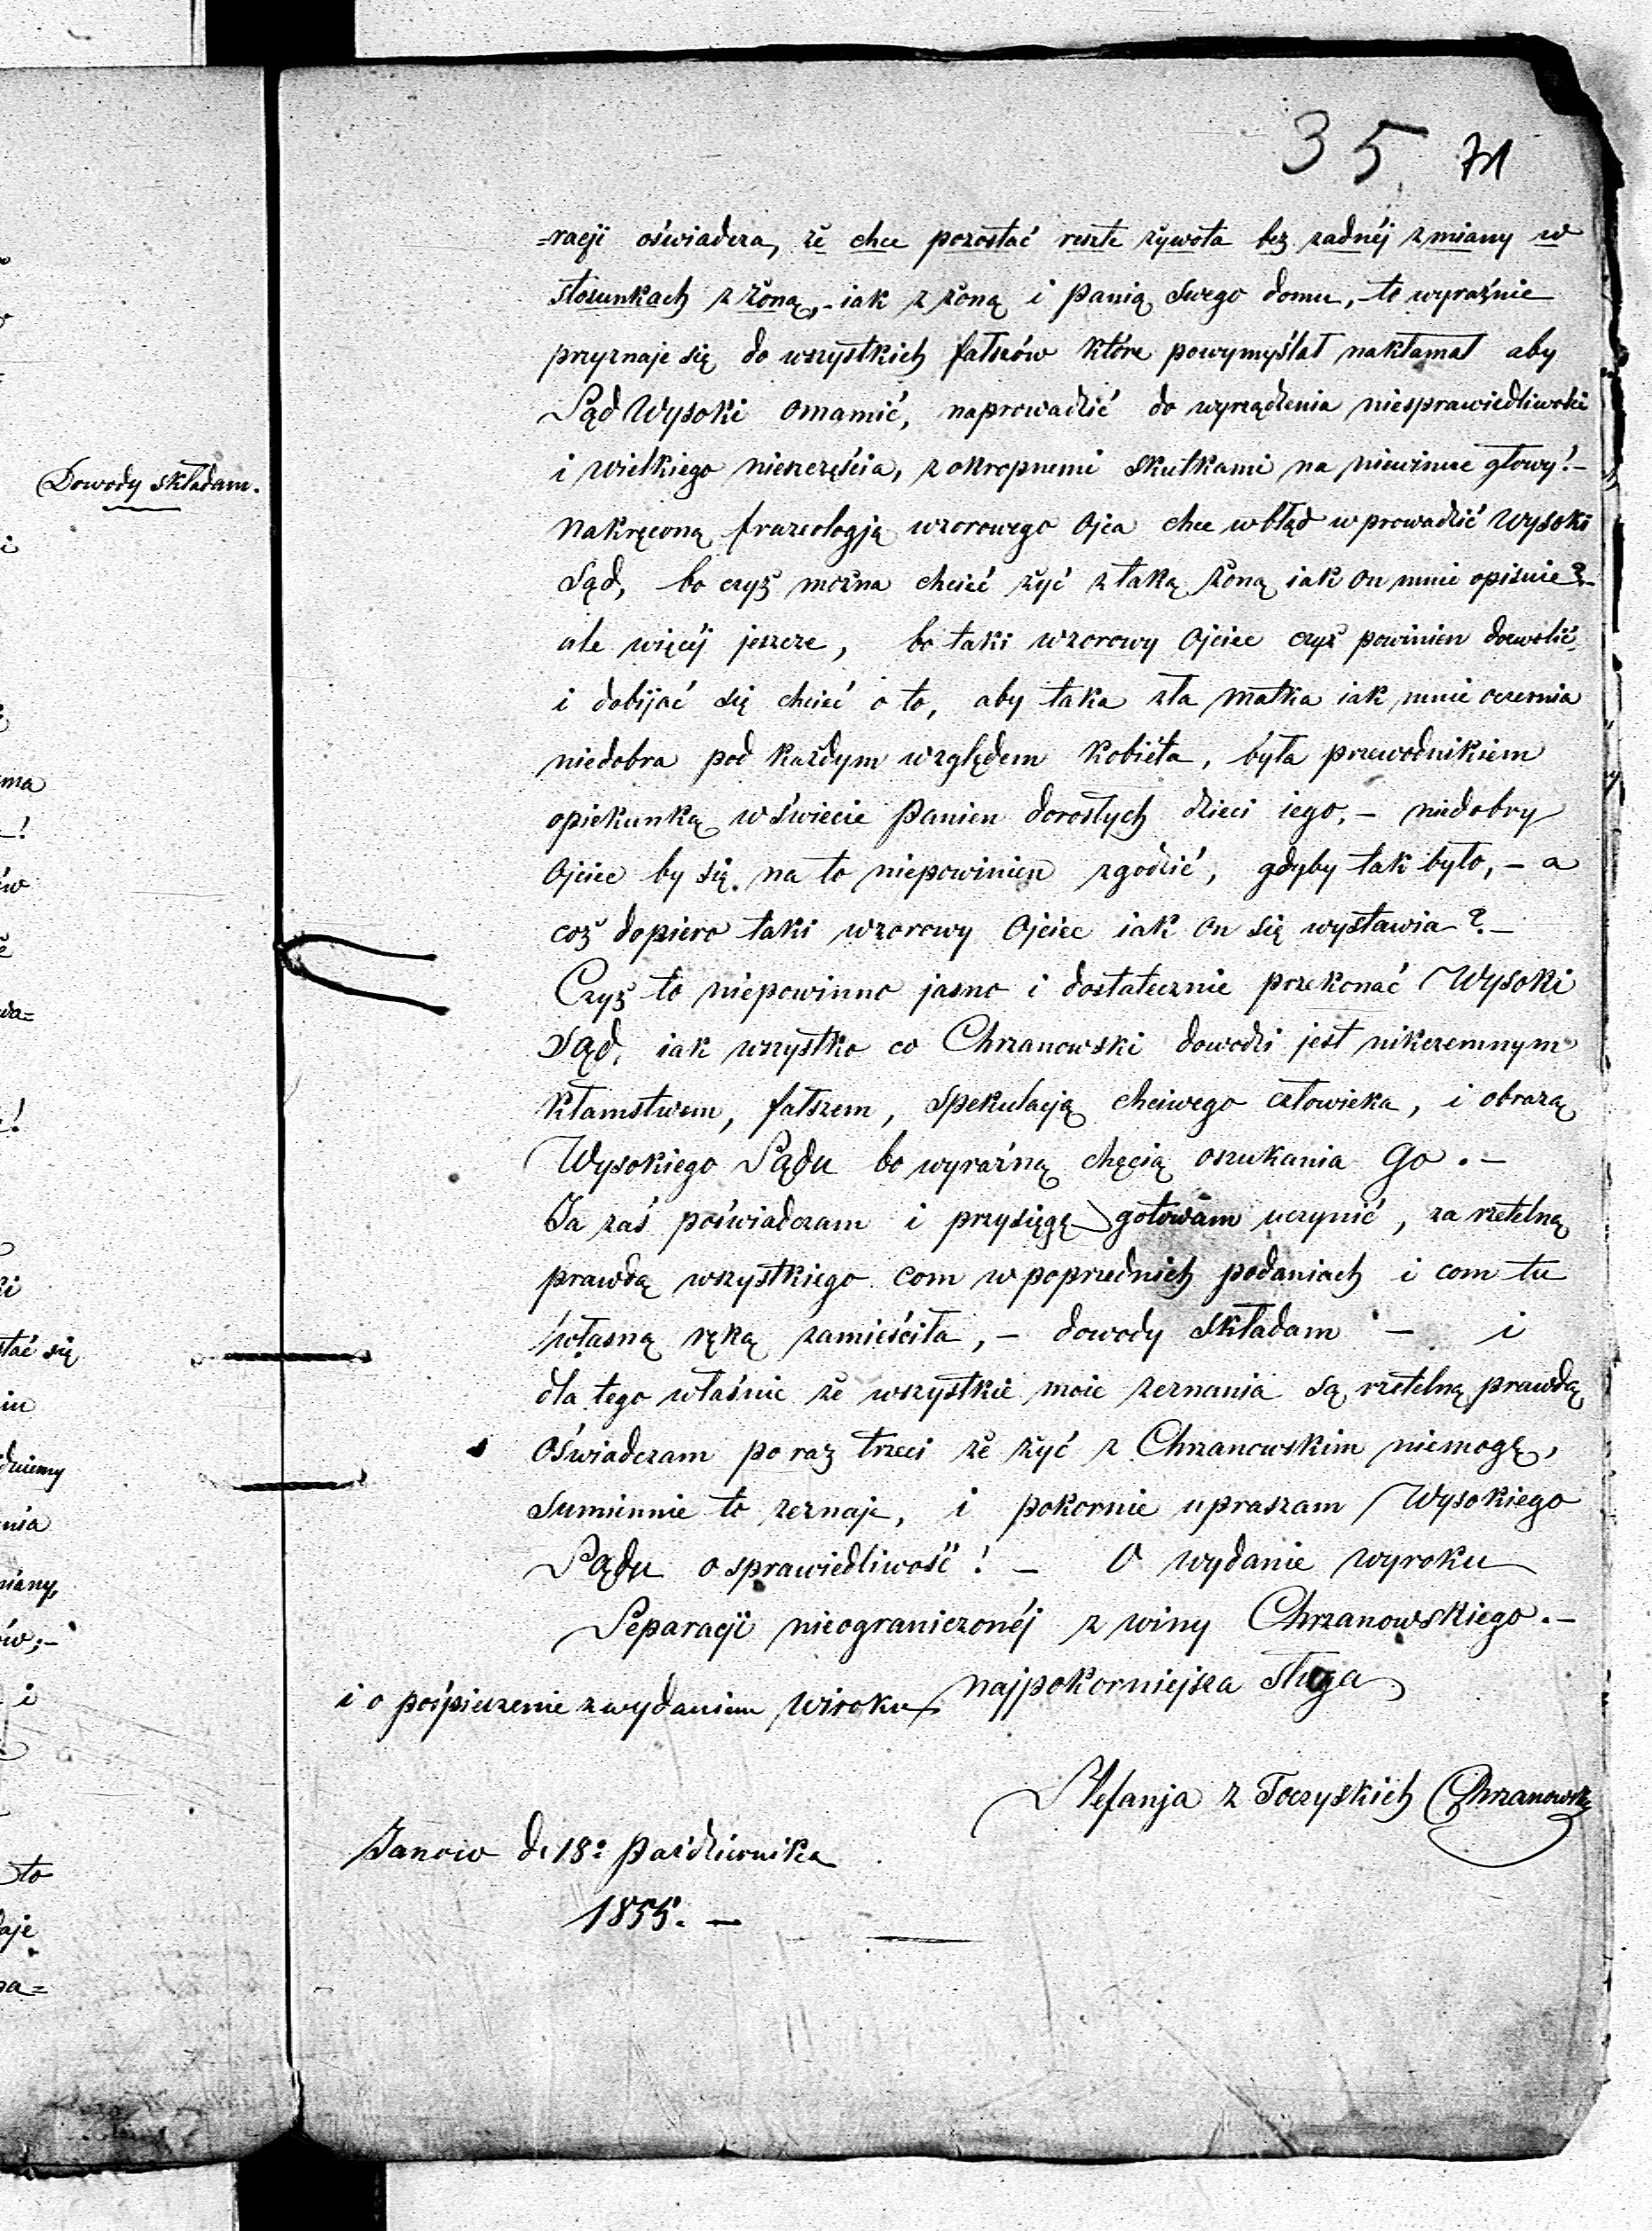 35 71
=racji oświadcza, że chce pozostać resztę żywota bez żadnéj zmiany w
stosunkach z żoną, - iak z żoną i Panią swego domu, to wyraźnie
przyznaje się do wszystkich fałszów które powymyślał nakłamał aby
Sąd Wysoki omamić, naprowadzić do wyrządzenia niesprawiedliwości
i wielkiego nieszczęścia, z okropnemi skutkami na niewinne głowy! -
Nakręconą frazeologją wzorowego Ojca chce w błąd wprowadzić Wysoki
Sąd, bo czyż można chcieć żyć z taką żoną iak on mnie opisuie? -
ale więcéj jeszcze, bo taki wzorowy Ojciec czyż powinien dozwolić,
i dobijać się chcieć o to, aby taka zła Matka iak mnie oczernia
niedobra pod każdym względem Kobiéta, była przewodnikiem
opiekunką w świecie Panien dorosłych dzieci iego, - niedobry
Ojciec by się na to niepowinien zgodzić, gdyby tak było, - a
coż dopiero taki wzorowy Ojciec iak on się wystawia? -
Czyż to niepowinno jasno i dostatecznie przekonać Wysoki
Sąd, iak wszystko co Chrzanowski dowodzi jest nikczemnym
Kłamstwem, fałszem, spekulacją chciwego człowieka, i obrazą
Wysokiego Sądu bo wyraźną chęcią oszukania Go. -
Ja zaś poświadczam i przysięgę gotowam uczynić, za rzetelną
prawdą wszystkiego com w poprzednich podaniach i com tu
własną ręką zamieściła, - dowody składam - i
dla tego właśnie że wszystkie moie zeznania są rzetelną prawdą
Oświadczam po raz trzeci że żyć z Chrzanowskim niemogę,
sumiennie to zeznaję, i pokornie upraszam Wysokiego
Sądu o sprawiedliwość! - O wydanie wyroku
Separacji nieograniczonéj z winy Chrzanowskiego. -
i o pośpieszenie z wydaniem Wiroku najpokorniejsza sługa
Stefanja z Toczyskich Chrzanowska
Janow d. 18º Października
1855. -
Dowody składam.
ma
!
ów
wa=
!
stać się
dziemy
nia
miany,
ów; -
i
to
daje
na=